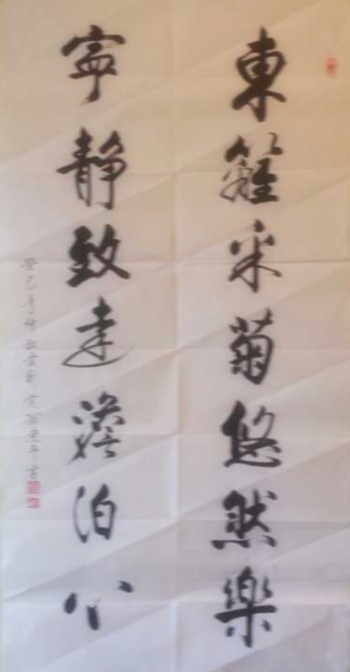 東籬采菊悠然樂
寧靜致遠澹泊心
癸巳